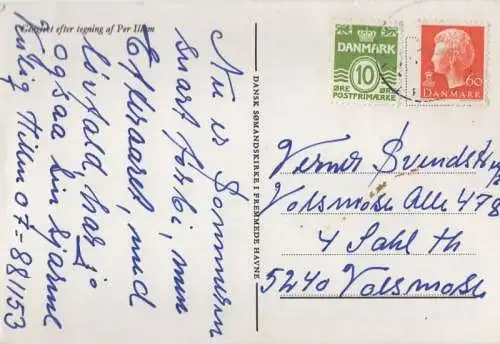 Gengivet efter tegning af Per Illum
Nu er Sommeren
snart forbi, men
Efteraaret, med
Løvfald har jo
ogsaa sin sjarme
Hilsen 07-881153
DANSK SØMANDSKIRKE I FREMMEDE HAVNE
DANMARK
10
ØRE ØRE
POSTFRIMÆRKE
60
DANMARK
Verner Svendsen
Volsmose Alle 478
4 Sahl th
5240 Volsmose